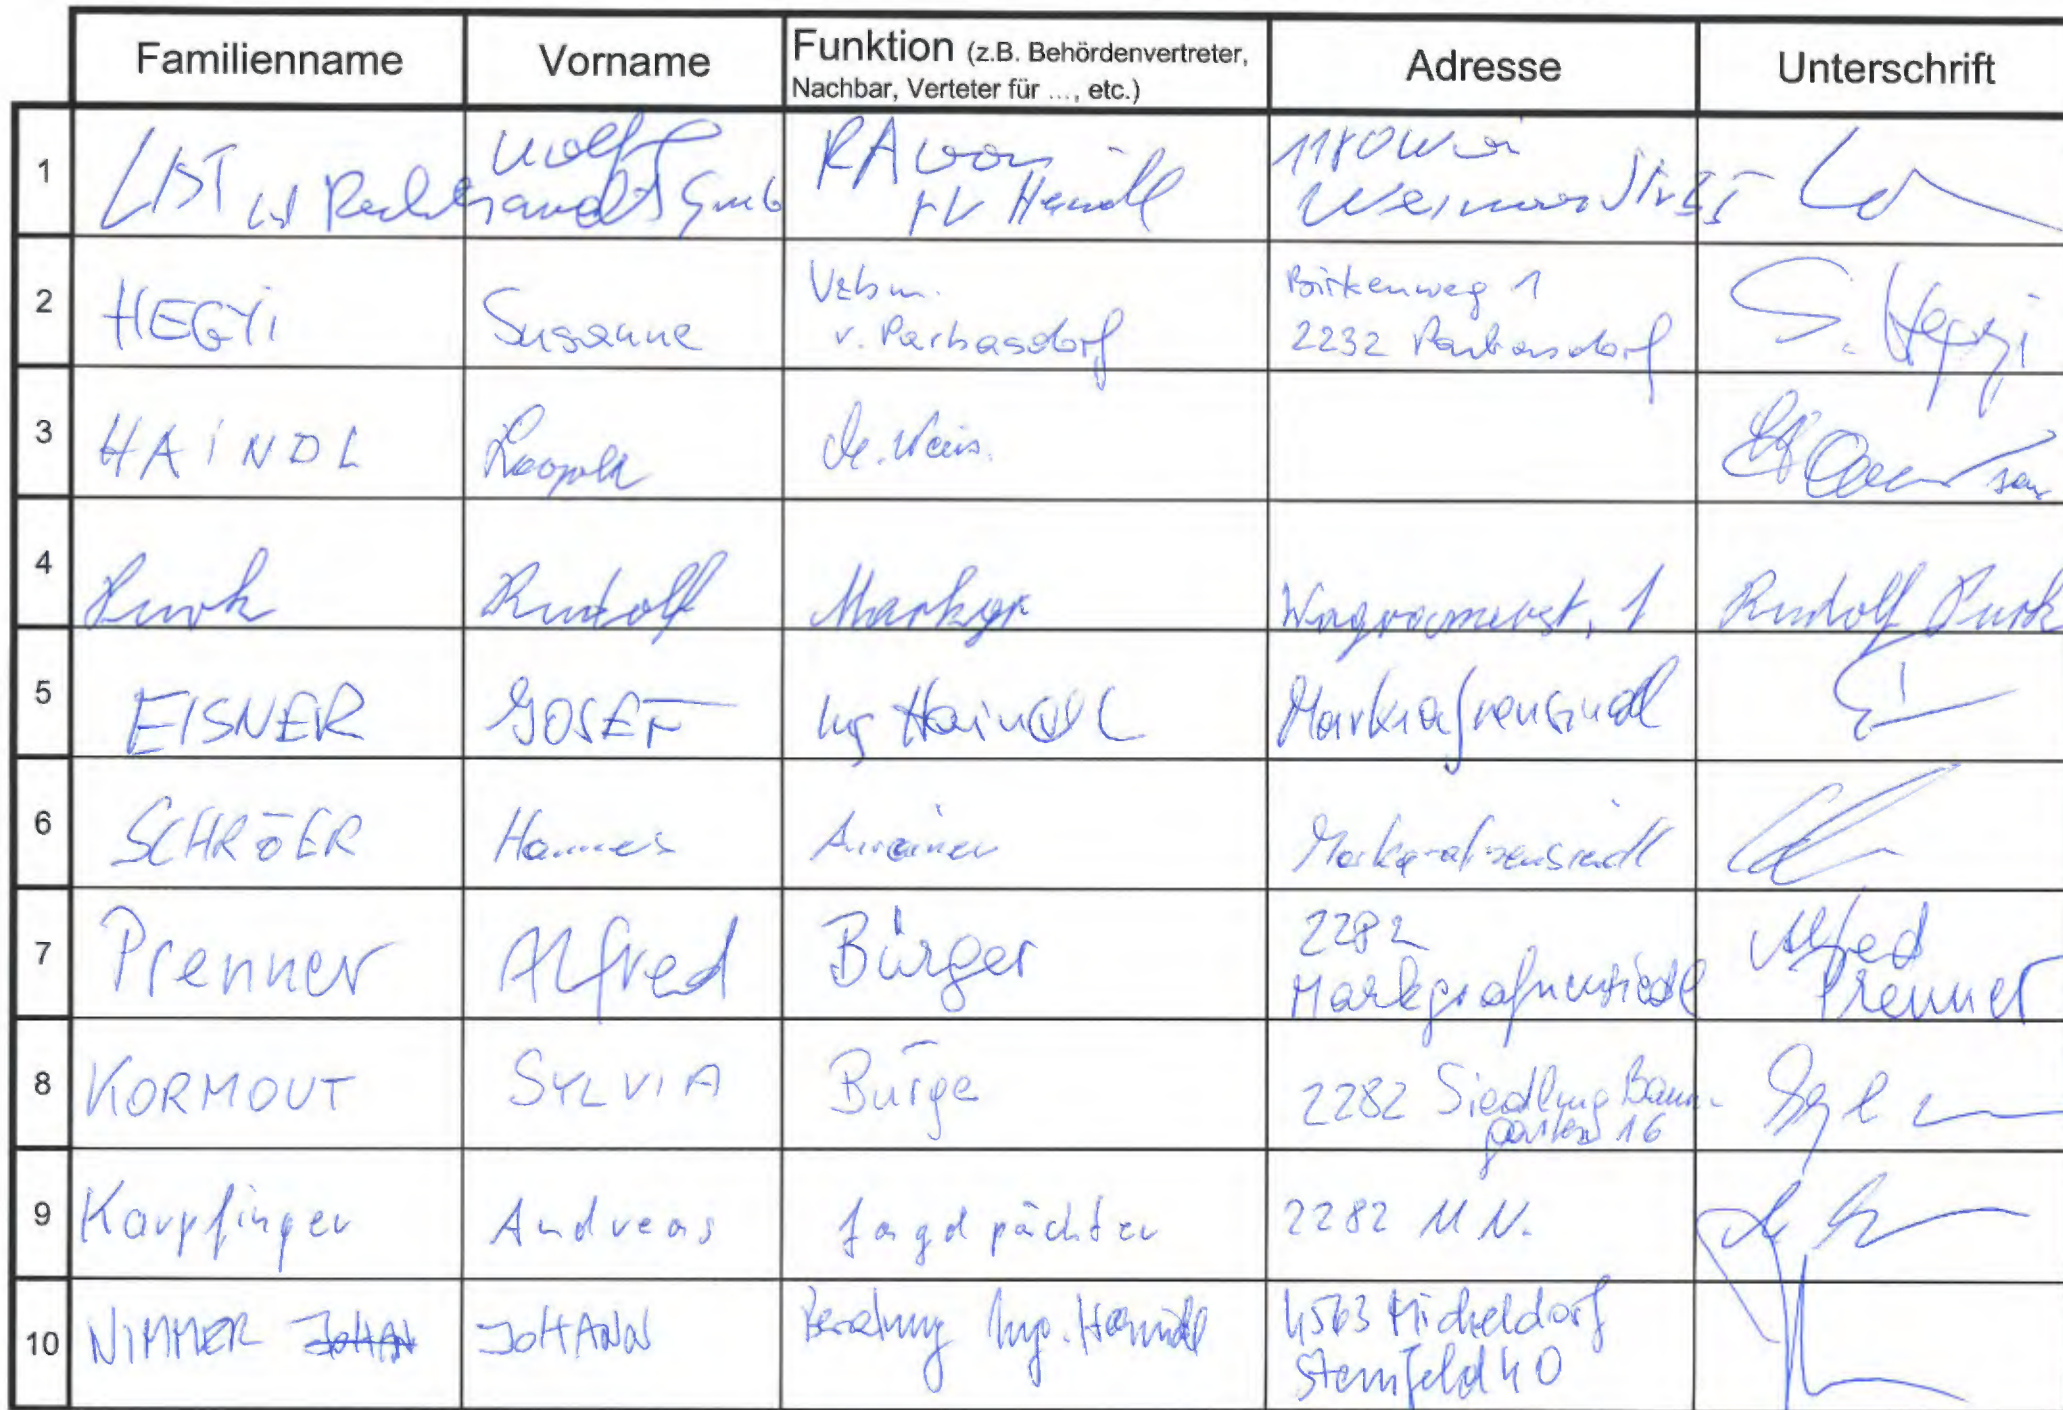 Familienname Vorname Funktion (z.B. Behördenvertreter, Nachbar, Verteter für ..., etc.) Adresse Unterschrift
1 LIST Wolf RA von 1180 Wien
Haindl
2 HEGYI Susanne Vzbm. v. Parbasdorf Birkenweg 1 2232 Parbasdorf S. Hegyi
3 HAINDL Leopold
4 Rudolf Wagramerst. 1 Rudolf
5 EISNER JOSEF Haindl
6 SCHRÖER Hannes Anrainer Markgrafneusiedl
7 Prenner Alfred Bürger 2282 Markgrafneusiedl Alfred Prenner
8 KORMOUT SYLVIA Bürge 2282 Siedlung Baum- garten 16
9 Karpfinger Andreas Jagdpächter 2282 M N.
10 NIMMER JOHAN JOHANN Beratung Ing. Haindl 4563 Micheldorf Steinfeld 40